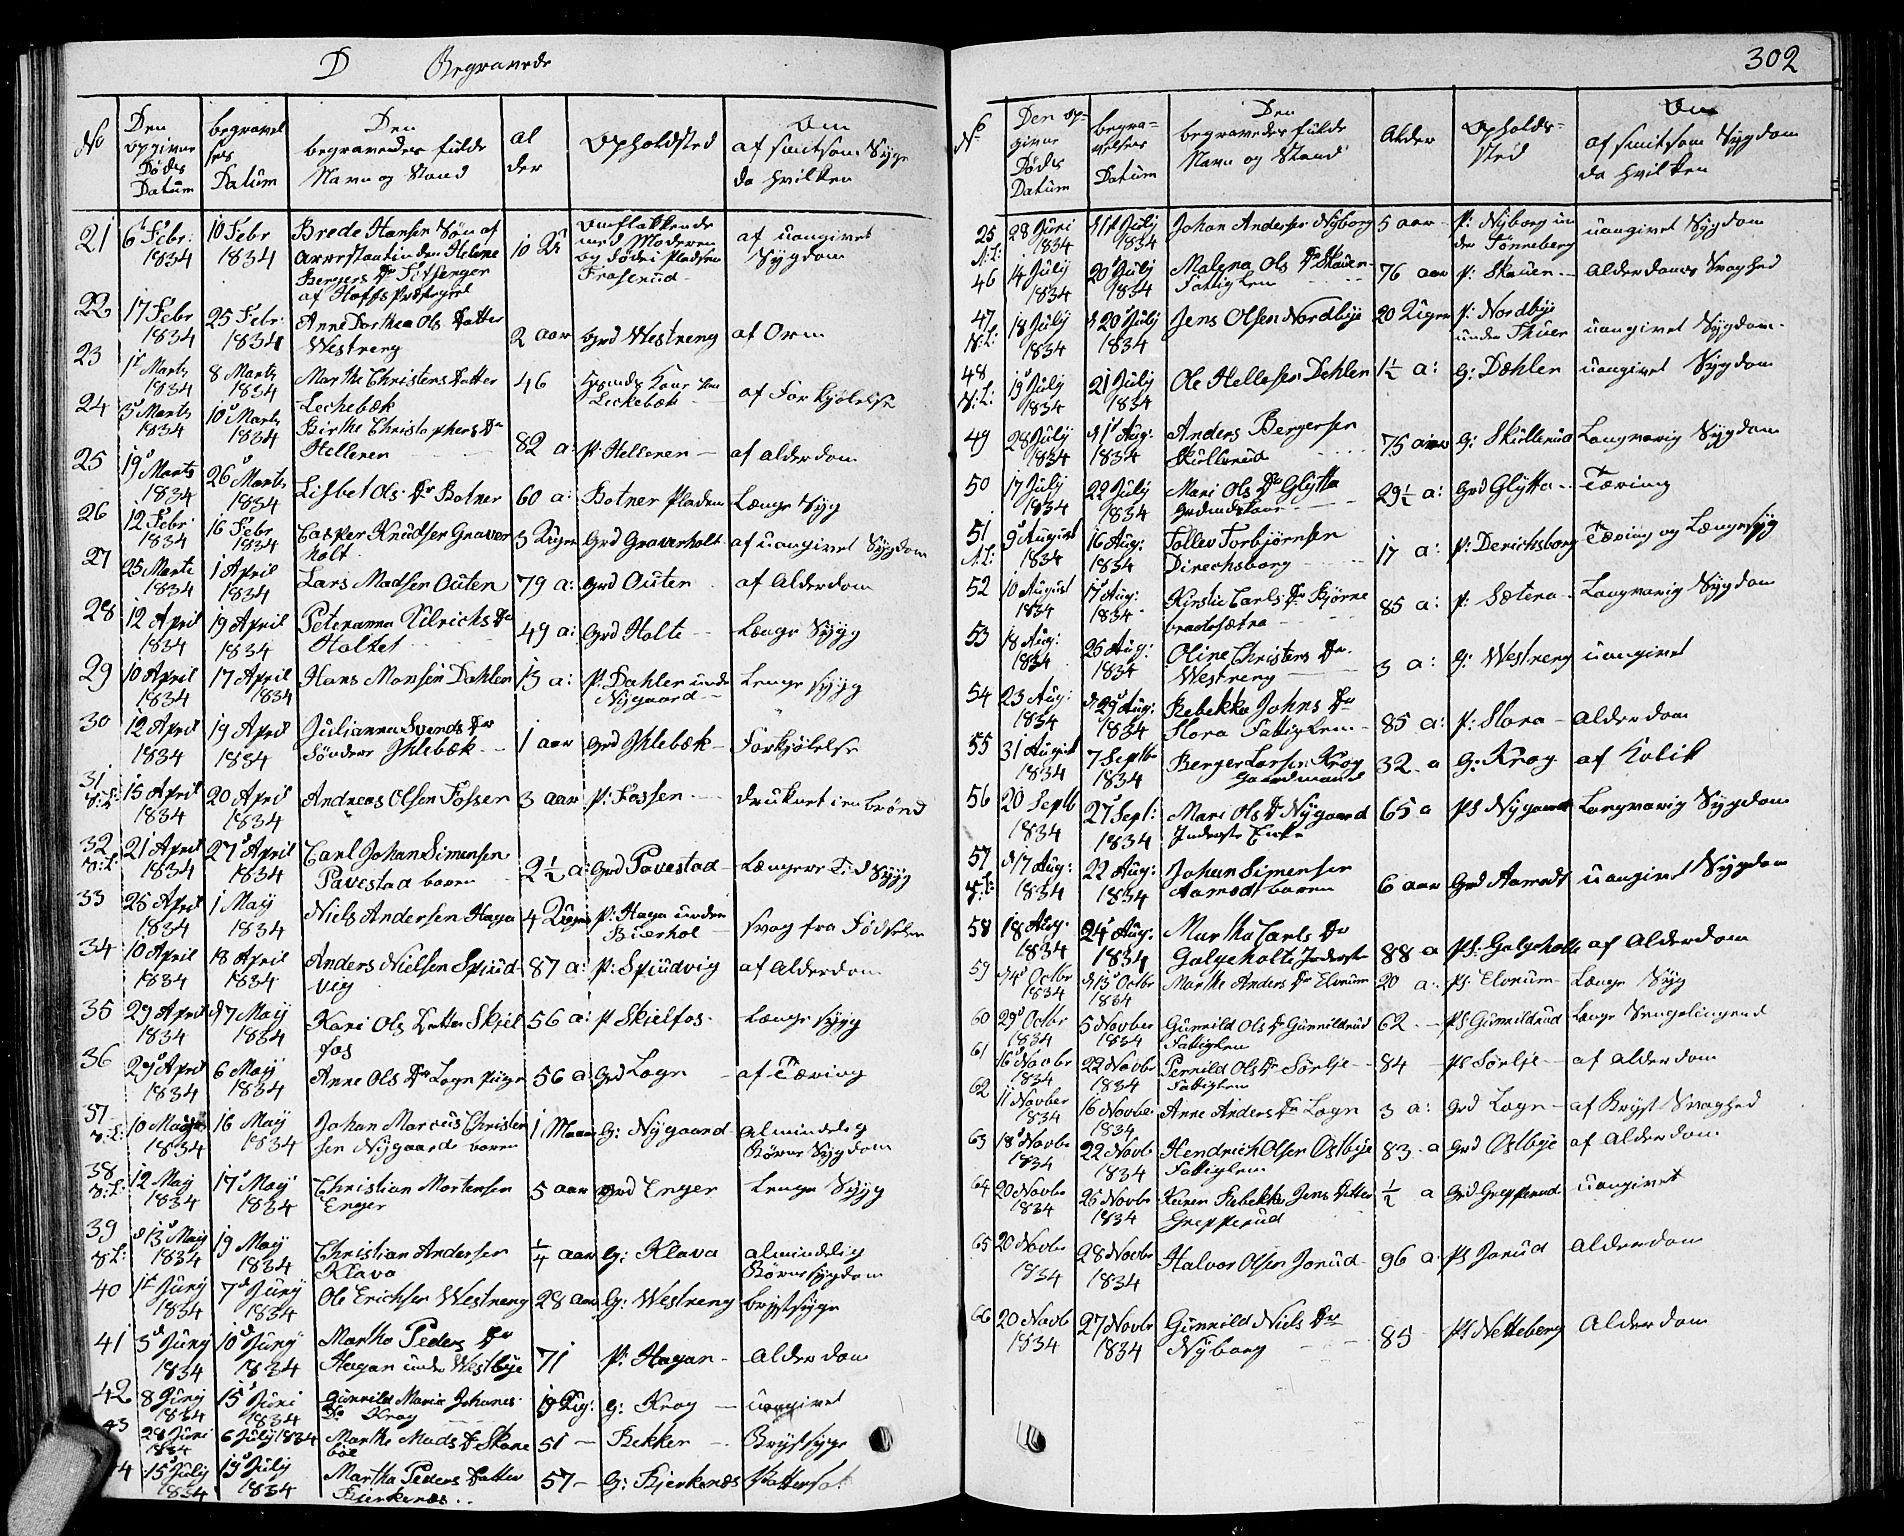 D Begravede
No
Den opgivne Døds Datum
begravelses Datum
Den begravedes fulde Navn og Stand
alder
Opholdsted
Om af smitsom Syge da hvilken
21 6t Febr: 1834 10 Febr 1834 Brede Hansen Søn af arrestantinden Helene Bergers Dr af Hoffs Præstegield 10 omflakkende med Moderen og Pladsen Froserud af uangivet Sygdom
22 17 Febr 1834 25 Febr 1834 Anne Dorthea Ols Datter Westreng 2 aar Grd Westreng af Orm
23 1t Marts 1834 8 Marts 1834 Marthe Christens Datter Leckebæk 46 Leckebæk af Forkjølelse
24 3d Marts 1834 10d Marts 1834 Birthe Christophers Dr Helleren 82 a: P: Helleren af alderdom
25 19d Marts 1834 26d Marts 1834 Lisbet Ols Dr Botner 60 a: Botner Pladsen Længe Syg
26 12 Febr 1834 16 Febr 1834 Casper Knudsen Graverholt 3 Uger Grd Graverholt af uangivet Sygdom
27 25 Marts 1834 1 April 1834 Lars Madsen Outen 79 a: Grd Outen af Alderdom
28 12 April 1834 19 April 1834 Peteranna Ulrichs Dr Holtet 49 a: Grd Holte Længe Syg
29 10 April 1834 17 April 1834 Hans Monsen Dahlen 13 a: P: Dahlen unde Nygaard Lenge syg
30 12 April 1834 19 April 1834 Julianna Svends Dr Søndere Ihlebæk 1 aar Grd Ihlebæk Forkjølelse
31 N:L: 15 April 1834 20 April 1834 Andreas Olsen Fossen 3 aar P: Fossen druknet i en brønd
32 N:L: 21 April 1834 27d April 1834 Carl Johan Simensen Pavestad baren 2½ a: Grd Pavestad Længere Tid Syg
33 25 April 1834 1 May 1834 Niels Andersen Haga 4 Uger P: Haga under Bierhol svag fra Fødselen
34 10 April 1834 18 April 1834 Anders Nielsen Spiudvig 87 a: P: Spiudvig af Alderdom
35 29 April 1834 d 7 May 1834 Kari Ols Datter Skielfos 56 a: P Skielfos Længe syg
36 29d April 1834 6 May 1834 Anne Ols Dr Logn Pige 56 a Grd Logn af Tæring
37 N:L: 10 May 1834 16 May 1834 Johan Marcus Christensen Nygaard baren 1 Maan G: Nygaard Almindelig Børne Sygdom
38 N:L: 12 May 1834 17 May 1834 Christian Mortensen Enger 5 aar Grd Enger Lenge Syg
39 N:L: d 13d May 1834 19 May 1834 Christian Andersen Klava ¼ aar G: Klava almindelig Børnesygdom
40 1t Juny 1834 7d Juny 1834 Ole Erichsen Westreng 28 aar G: Westreng brystsyge
41 3d Juny 1834 10d Juny 1834 Martha Peders Dr Hagan unde Westbye 71 P: Hagan Alderdom
42 8 Juny 1834 15d Juni 1834 Gunnild Maria Johannes Dr Krog G: Krog uangivet
43 28 Juni 1834 6 July 1834 Marthe Mads Dr Skonebøl 51 Bekken Brystsyge
4 15d July 1834 19d July 1834 Martha Peders Datter Bierkenæs 57 G: Bierkenæs Vattersot
302
No
Den opgivne Døds Datum
begravelses Datum
Den begravedes fulde Navn og Stand
Alder
Opholdssted
Om af smitsom Sygdom da hvilken
25 N:L: 28 Juni 1834 July 1834 Johan Andersen Nyborg 5 aar P: Nyborg under Sønneberg uangivet Sygdom
46 14 July 1834 20d July 1834 Malena Ols Dr Skauen Fattiglem 76 aar P: Skauen Alderdoms Svaghed
47 N:L: 18 July 1834 d 20d July 1834 Jens Olsen Nordbye 20 Uger P: Nordbye unde Thuer uangivet Sygdom
48 N:L: 19d July 1834 21 July 1834 Ole Hellesen Dehlen 1½ a: G: Dæhlen uangivet Sygdom
49 28 July 1834 d 1d Aug: 1834 Anders Bergersen Skullerud 75 aar G: Skullerud Langvarig Sygdom
50 17 July 1834 22 July 1834 Mari Ols Dr Glytta 29½ a: Grd Glytta Tæring
51 N:L: 9d August 1834 16 Aug: 1834 Tollev Torbjørnsen Direchsborg 17 a: P: Derichsborg Tæring og Længesyg
52 10 August 1834 17d Aug: 1834 Kirstie Carls Dr Bjørnebraatesætra 85 a: P: Sætera Langvarig Sygdom
53 18 Aug: 1834 25 Aug: 1834 Oline Christens Dr Westreng 3 a: G: Westreng uangivet
54 23 Aug: 1834 d 29d Aug: 1834 Rebekka Johns Dr Slora Fattiglem 85 a: P: Slora Alderdom
55 31 August 1834 7 Septbr 1834 Berger Larsen Krog Gaardmand 32 a G: Krog af Kolik
56 20 Septb 1834 27d Sept: 1834 Mari Ols Dr Nygaard Inderste Enke 65 a Ps Nygaard Langvarig Sygdom
57 N:L: d 17 Aug: 1834 22 Aug: 1834 Johan Simensen Aamodt baren 6 aar Grd Aamodt uangivet Sygdom
58 18 Aug. 1834 24d Aug: 1834 Martha Carls Dr Galgeholt Inderste 88 a Ps: Galgeholt af Alderdom
59 d 4d Octbr 1834 d 13d Octbr 1834 Marthe Anders Dr Elvrum 20 a: Ps: Elvrum Længe Syg
60 29d Octbr 1834 5 Novber 1834 Gunnild Ols Dr Gunnildrud Fattiglem 62 Ps Gunnildrud Lange Sengeliggend
61 16d Novbr 1834 22 Novbr 1834 Pernild Ols Dr Sørlje Fattiglem 84 Ps Sørlje af alderdom
62 11 Novber 1834 16 Novbe: 1834 Anne Anders Dr Logn 3 a: Grd Logn af Bryst Svaghed
63 18d Novbr 1834 22 Novbr 1834 Hendrich Olsen Ostbye Fattiglem 83 a Grd Ostbye af Alderdom
64 20 Novbr 1834 26 Novbr 1834 Karen Rebekka Jens Datter Grepperud ½ a Grd Grepperud uangivet
65 20 Novbr 1834 28 Novbr 1834 Halvor Olsen Jorud 96 a Ps Jorud Alderdom
66 20 Novb 1834 27 Novbr 1834 Gunnild Niels Dr Nyborg 85 Ps Netteberg Alderdom